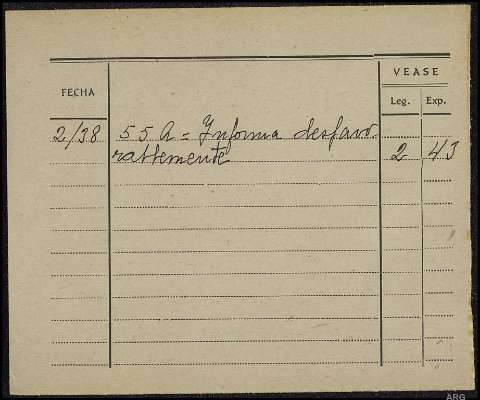 VEASE
FECHA
Leg. Exp.
2/38 55 A = Informa desfavo-
rablemente 2 43
ARG